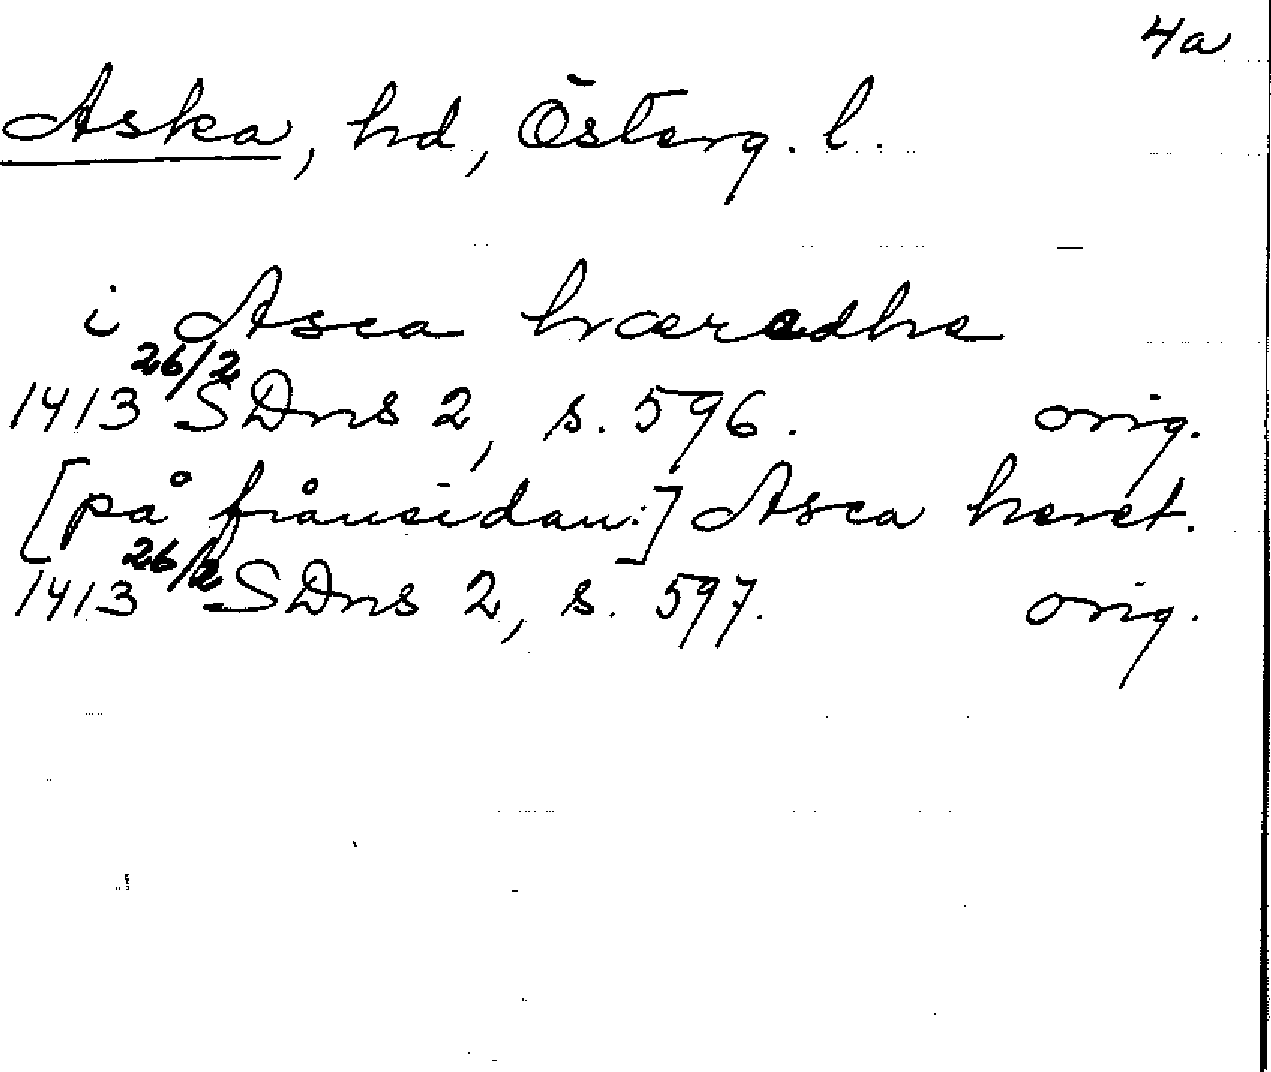 4a
Aska, hd, Österg. l.
i Asca hæredhe
1413 26/2 SDns 2, s. 596. orig.
[på frånsidan:] Asca heret.
1413 26/2 SDns 2, s. 597. orig.